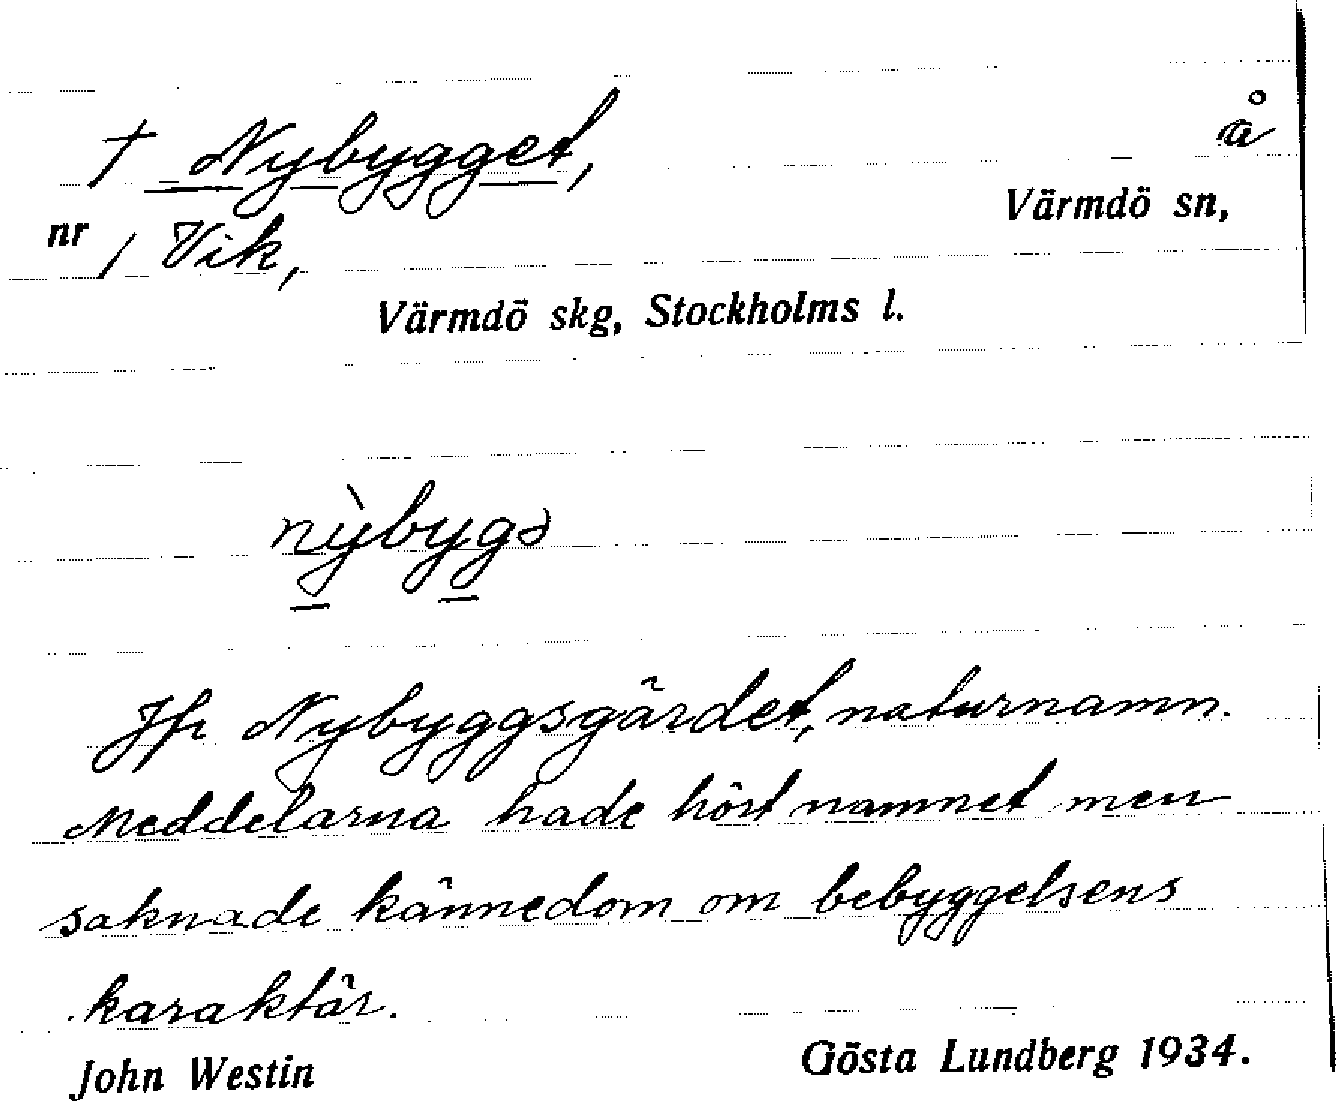 † Nybygget, å
Värmdö sn,
nr / Vik,
Värmdö skg, Stockholms l.
nỳbygə
Jfr Nybyggsgärdet, naturnamn.
Meddelarna hade hört namnet men
saknade kännedom om bebyggelsens
karaktär.
John Westin Gösta Lundberg 1934.